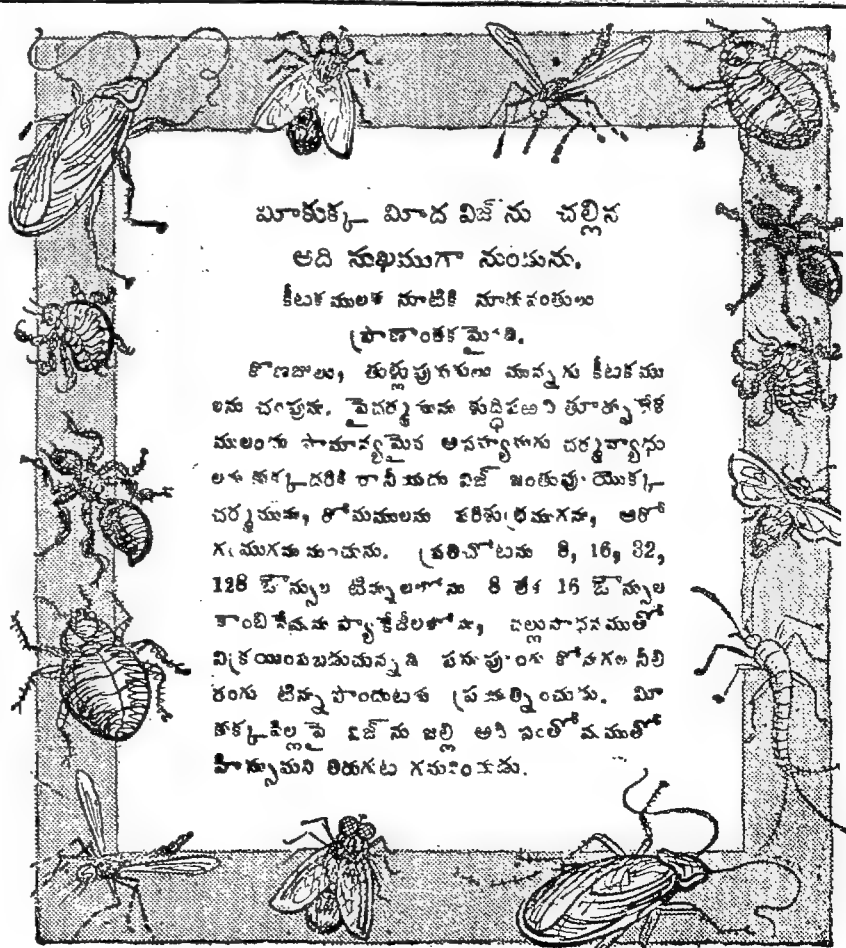 మీకుక్క మీద విజ్ ను చల్లిన
అది సుఖముగా నుండును.
కీటకములకు నూటికి నూరువంతులు
ప్రాణాంతకమైనది.
కొణజులు, తుళ్లుపురుగులు మున్నగు కీటకము
లను చంపును. పైచర్మమును శుద్ధిపఱచి తూర్పుదేశ
ములందు సామాన్యమైన అసహ్యమగు చర్మవ్యాధు
లను కుక్కదరికి రానీయదు విజ్ జంతువు యొక్క
చర్మమును, రోమములను పరిశుభ్రముగను, ఆరో
గ్యముగను నుంచును. ప్రతిచోటను 8, 16, 32,
128 ఔన్సుల టిన్నులలోను 8 లేక 16 ఔన్సుల
కాంబినేషను ప్యాకేజీలలోను, చల్లుసాధనముతో
విక్రయింపబడుచున్నది పసుపురంగు కోనగల నీలి
రంగు టిన్ను పొందుటకు ప్రయత్నించుడు. మీ
కుక్కపిల్లపై విజ్ ను జల్లి అది సంతోషముతో
తిరుగుట గమనించుడు.